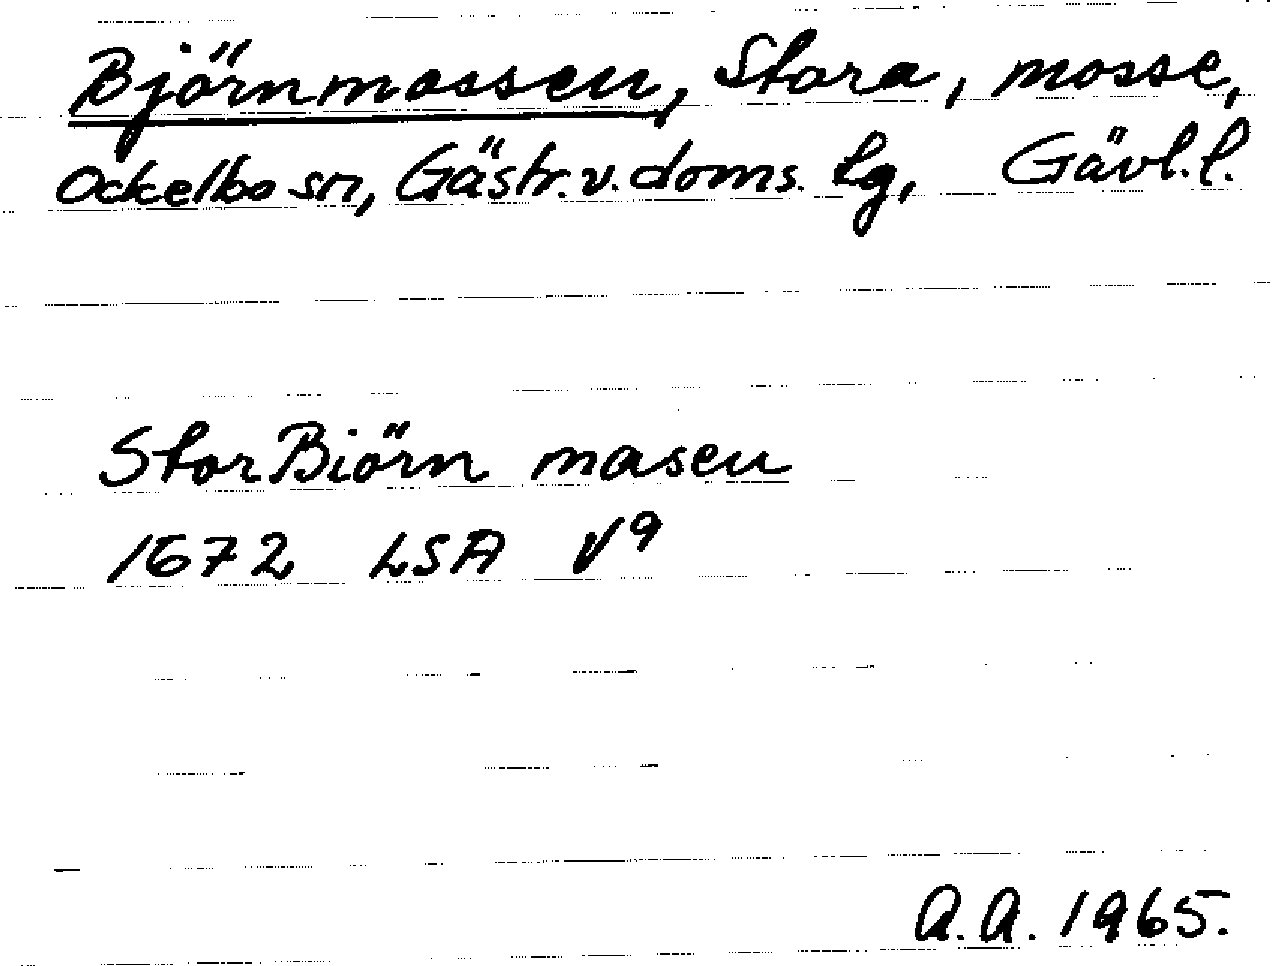 Björnmossen, Stora, mosse,
Ockelbo sn, Gästr. v. doms. lg, Gävl.l.
Stor Biörn masen
1672 LSA V9
A.A. 1965.